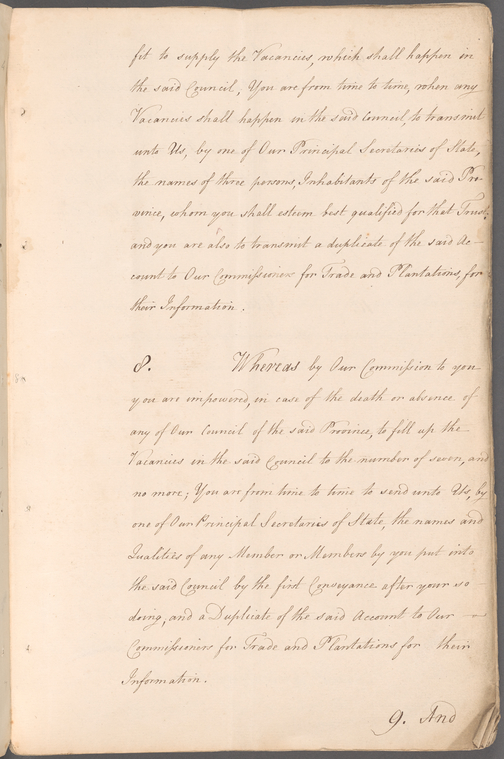 fit to supply the Vacancies, which shall happen in
the said Council; You are from time to time, when any
Vacancies shall happen in the said Council, to transmit
unto Us, by one of Our Principal Secretaries of State,
the names of three persons, Inhabitants of the said Pro-
vince, whom you shall esteem best qualified for that Trust;
and you are also to transmit a duplicate of the said Ac-
count to Our Commissioners for Trade and Plantations, for
their Information.
8. Whereas by Our Commission to you
you are impowered, in case of the death or absence of
any of Our Council of the said Province, to fill up the
Vacancies in the said Council to the number of seven, and
no more; You are from time to time to send unto Us, by
one of Our Principal Secretaries of State, the names and
Qualities of any Member or Members by you put into
the said Council by the first Conveyance after your so
doing, and a Duplicate of the said Account to Our
Commissioners for Trade and Plantations for their
Information.
9. And